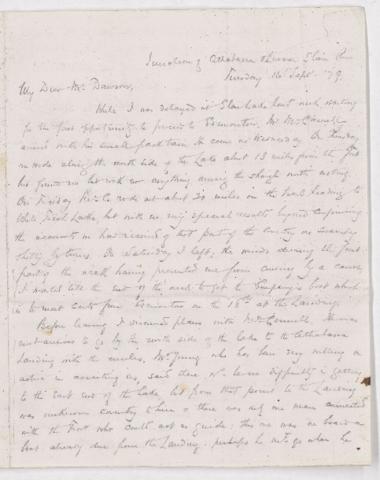 Junction of Athabasca & Lesser Slave River
Tuesday 16 Sept. '79.
My Dear Mr Dawson,
While I was delayed at Slave Lake last week waiting
for the first opportunity to proceed to Edmonton, Mr McConnell
arrived with his small pack train. He came on Wednesday. On Thursday
we rode along the north side of the Lake about 13 miles from the Fort
but found no rock or anything among the worth noting.
On Friday we rode out about 20 miles on the trail leading to
White Fish Lake, but with no very special results beyond confirming
the accounts we had received of that part of the country
. On Saturday I left, the winds during the first
part of the week having prevented me from coming by a canoe
I would take the end of the week to get to Company's boat which
is to meet carts from Edmonton on the 18th at the Landing.
Before leaving I discussed plans with Mr McConnell. He was
most anxious to go by the north side of the lake to the Athabasca
Landing with the mules. Mr Young who has been very willing &
active in assisting us, said there was no difficulty in getting
to the East end of the Lake, but from that point to the Landing
was unknown country to him & there was not one man connected
with the Fort who could act as guide; there was no
boat already due from the Landing. perhaps he when he